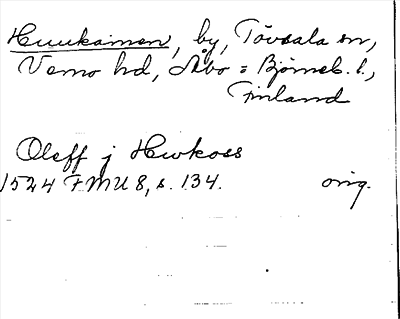 Huukainen, by, Tövsala sn,
Vemo hd, Åbo = Björneb. l.,
Finland
Oleff j Hwkoss
1524 FMU 8, s. 134. orig.